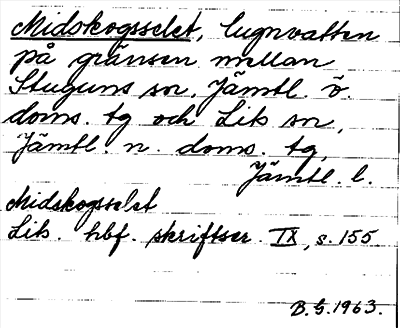 Midskogsselet, lugnvatten
på gränsen mellan
Stuguns sn, Jämtl. ö.
doms. tg och Lits sn,
Jämtl. n. doms. tg,
Jämtl. l.
Midskogsselet
Lits. hbf. skriftser. IX, s. 155
B. G. 1963.